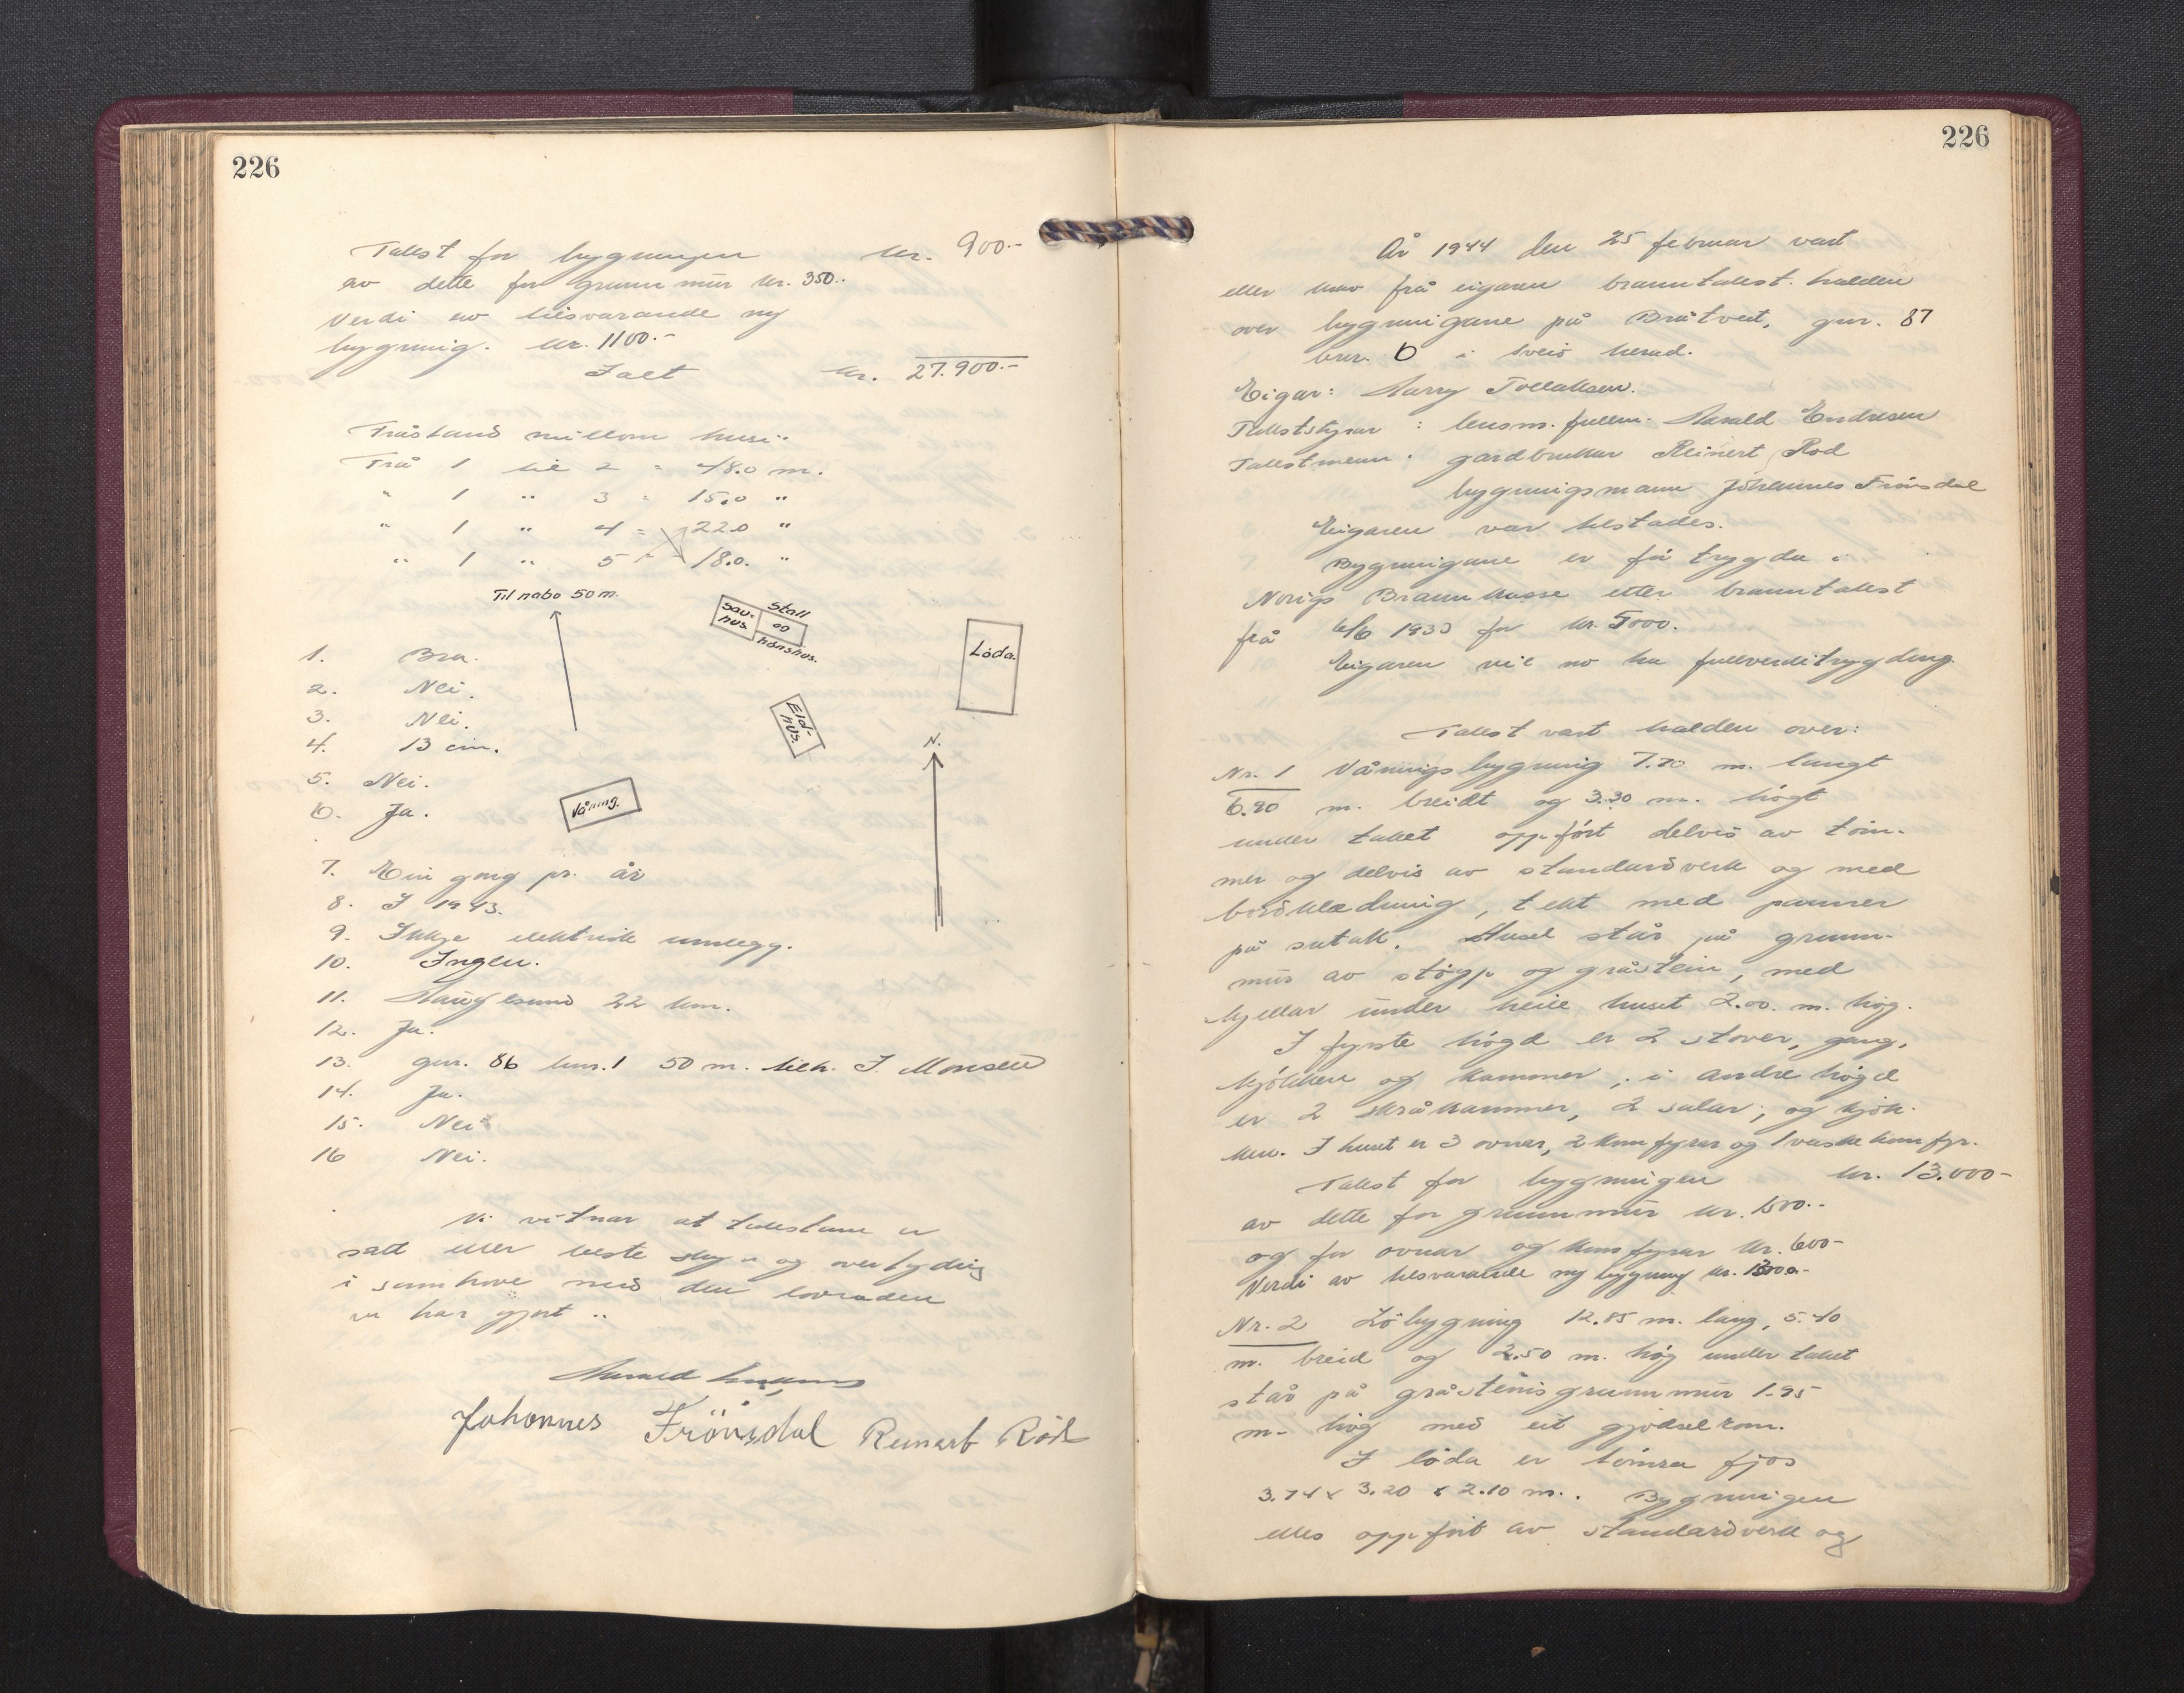 226
Takst for bygningen kr. 900.-
av dette for grunnmur kr. 350..
Verdi av tilsvarande ny
bygning. kr. 1100.-
I alt kr. 27.900.-
Fråstand millom husi..
Frå 1 til 2 = 48.0 m.
" 1 " 3 = 15.0 "
" 1 " 4 = 22.0 "
" 1 " 5 = 18.0. "
Til nabo 50 m.
Sau-
hus.
Stall
og
hønshus.
Löda.
Eld-
hus.
N.
Våning.
1. Bra.
2. Nei.
3. Nei.
4. 13 cm.
5. Nei.
6. Ja.
7. Ein gong pr. år
8. I 1943.
9. Ikkje elektrisk innlegg.
10. Ingen.
11. Haugesund 22 km.
12. Ja.
13. gnr. 86 bnr. 1 50 m. tilh. I. Monsen
14. Ja.
15. Nei
16 Nei.
Vi vitnar at takstane er
satt etter beste skyn og overtyding
i samhøve med den lovnaden
vi har gjort ..
Harald
Johannes Frönsdal Reinert Röd
226
År 1944 den 25 februar vart
etter krav frå eigaren branntakst halden
over bygningane på Bråtveit, gnr. 87
bnr. 6 i Sveio herad.
Eigar: Harry Tollaksen.
Takststyrar : lensm. fullm. Harald Endresen
Takstmenn : gardbrukar Reinert Rød
bygningsmann Johannes Frönsdal
Eigaren var tilstades.
Bygningane er få trygda i
Norigs Brannkasse etter branntakst
frå 6/6 1933 for kr. 5000.
Eigaren vil no ha fullverditrygding.
Takst vart halden over:
Nr. 1 Våningsbygning 7.70 m. langt
6.20 m. breidt og 3.30 m. högt
under taket oppfört delvis av töm-
mer og delvis av standardverk og med
bordklædning, tekt med panner
på sutak. Huset står på grunn-
mur av stöyp og gråstein, med
kjellar under heile huset 2.00 m. hög.
I fyrste högd er 2 stover, gang,
kjökken og kammer, i andre högd
er 2 skråkammer, 2 salar, og kjök-
ken. I huset er 3 ovnar, 2 komfyrar og 1 vaskekomfyr.
Takst for bygningen kr. 13.000-
av dette for grunnmur kr. 1500.-
og for ovnar og komfyrar kr. 600-
Verdi av tilsvarande ny bygning kr.
Nr. 2 Löbygning 12.85 m. lang, 5.40
m. breid og 2.50 m. høg under taket
står på gråsteinsgrunnmur 1.95
m. høg med eit gjödselrom.
I löda er tömra fjos
3.74 x 3.20 x 2.10 m. . Bygningen
elles oppfört av standardverk og